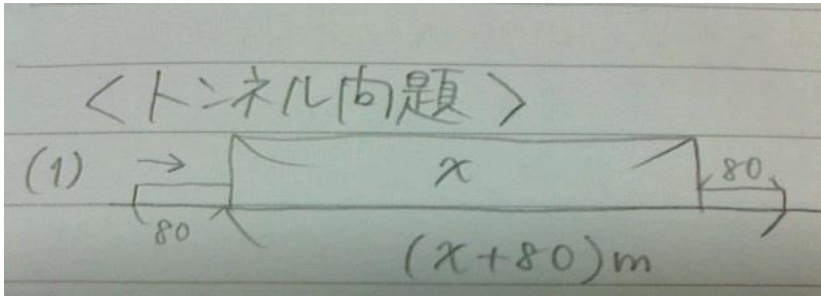 <トンネル問題>
(1) → x 80
80
(x+80)m